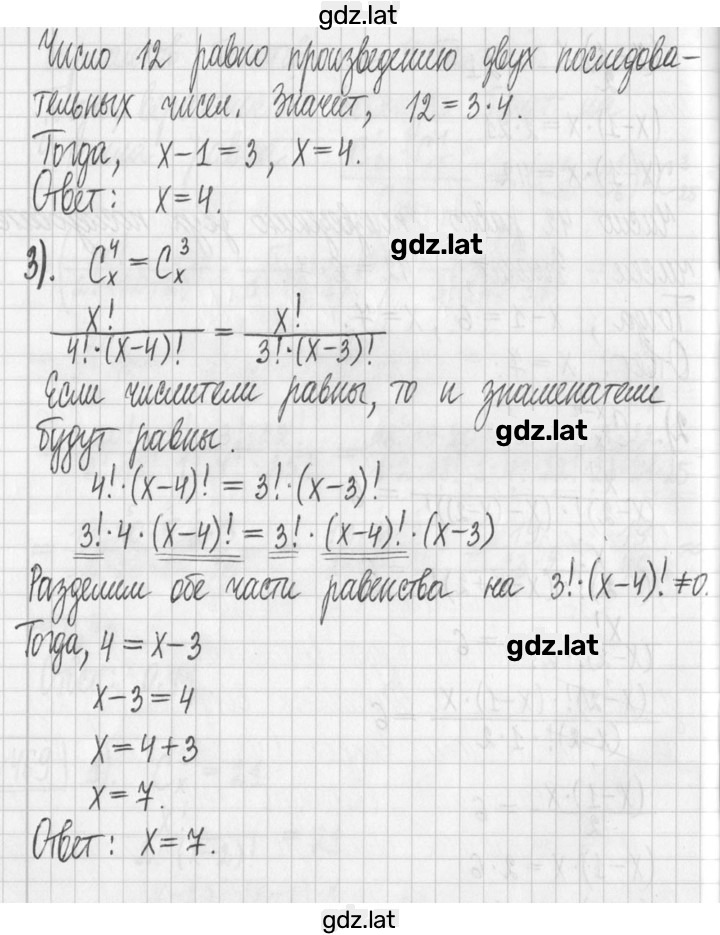 gdz.lat
Число 12 равно произведению двух последова-
тельных чисел. Значит, 12 = 3·4.
Тогда, x-1=3, x=4.
Ответ: x=4.
gdz.lat
3). C_x^4 = C_x^3
x!/(4!·(x-4)!) = x!/(3!·(x-3)!)
Если числители равны, то и знаменатели
будут равны.
gdz.lat
4!·(x-4)! = 3!·(x-3)!
3!·4·(x-4)! = 3!·(x-4)!·(x-3)
Разделим обе части равенства на 3!·(x-4)! ≠0.
Тогда, 4 = x-3
gdz.lat
x-3 = 4
x = 4+3
x = 7.
Ответ: x=7.
gdz.lat